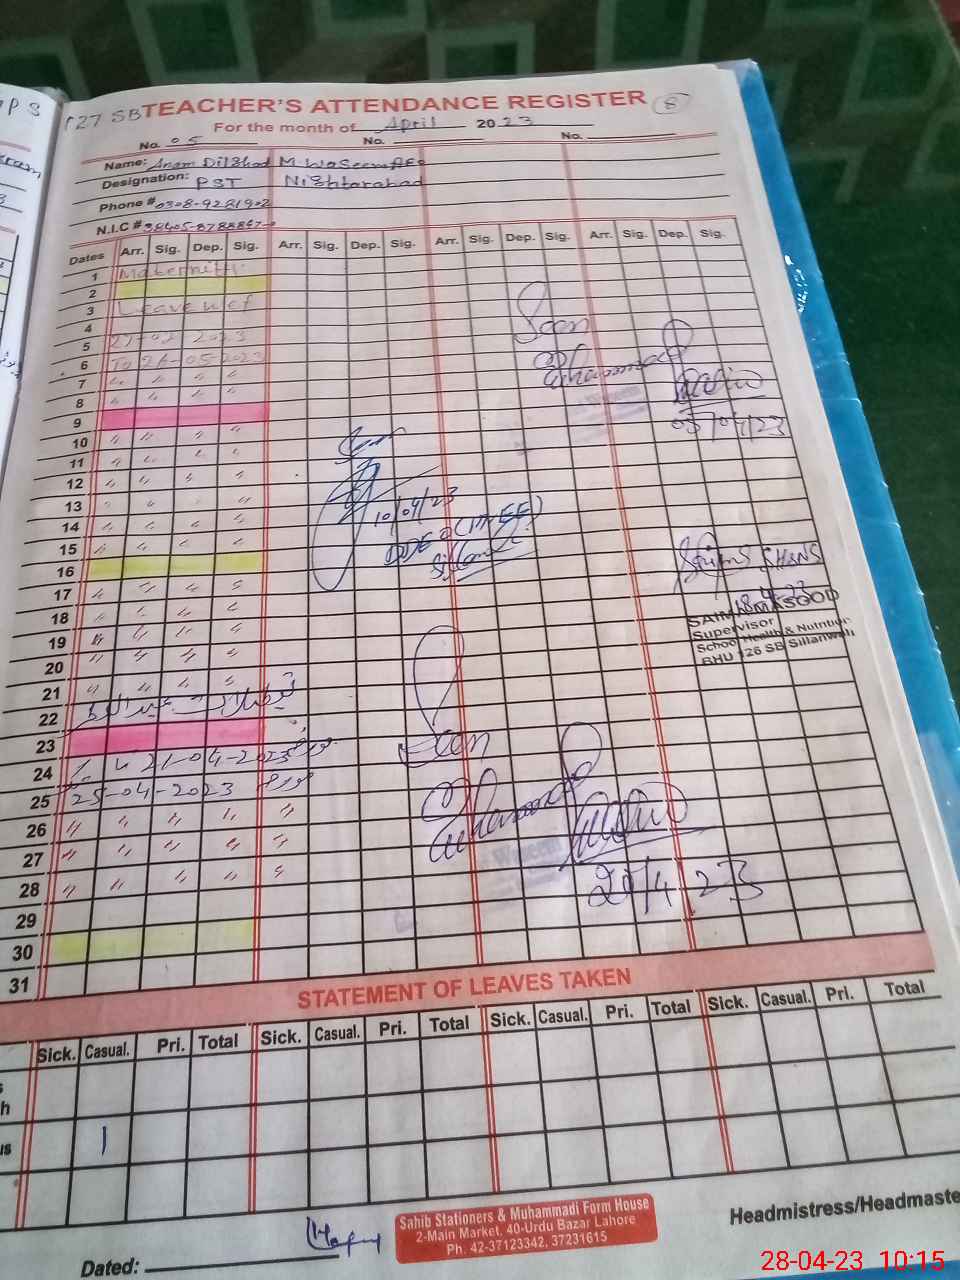 127 SB TEACHER'S ATTENDANCE REGISTER 8
For the month of April 2023
No. 05 No. No.
Name: Anam Dilshad M. Waseem
Designation: PST Nishtarabad
Phone # 0308-9281902
N.I.C #
Dates Arr. Sig. Dep. Sig. Arr. Sig. Dep. Sig. Arr. Sig. Dep. Sig. Arr. Sig. Dep. Sig.
1 Maternity
2
3 Leave wef
4
5 27-02-2023
6 To 26-05-2023
7 " " " "
8 " " " "
9
10 " " " "
11 " " " "
12 " " " "
13 " " " "
14 " " " "
15 " " " "
16
17 " " " "
18 " " " "
19 " " " "
20 " " " "
21 " " " "
22
23
24 21-04-2023
25 25-04-2023
26 " " " " "
27 " " " " "
28 " " " " "
29
30
31
Seen
05/04/23
10/04/23
SHNS
18-4-23
SAIMA MASOOD
Supervisor
School Health & Nutrition
BHU 126 SB Sillanwali
Seen
20/4/23
STATEMENT OF LEAVES TAKEN
Sick. Casual. Pri. Total Sick. Casual. Pri. Total Sick. Casual. Pri. Total Sick. Casual. Pri. Total
h
us 1
Sahib Stationers & Muhammadi Form House
2-Main Market, 40-Urdu Bazar Lahore
Ph. 42-37123342, 37231615
Headmistress/Headmaste
Dated:
28-04-23 10:15